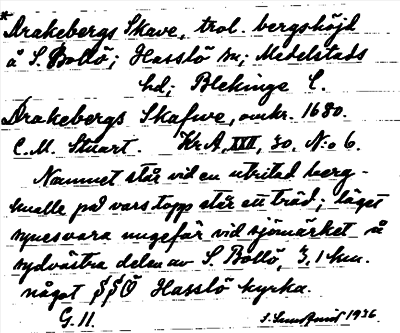 *Drakebergs Skave, trol. bergshöjd
å S. Bollö; Hasslö sn; Medelstads
hd; Blekinge l.
Drakebergs Skafwe, omkr. 1680.
C.M. Stuart. Kr.A, XIII, 30. No 6.
Namnet står vid en utritad berg-
knalle på vars topp står ett träd; läget
synes vara ungefär vid sjömärket å
sydvästra delen av S. Bollö, 3,1 km.
något SSÖ Hasslö kyrka.
G. 11. 1936